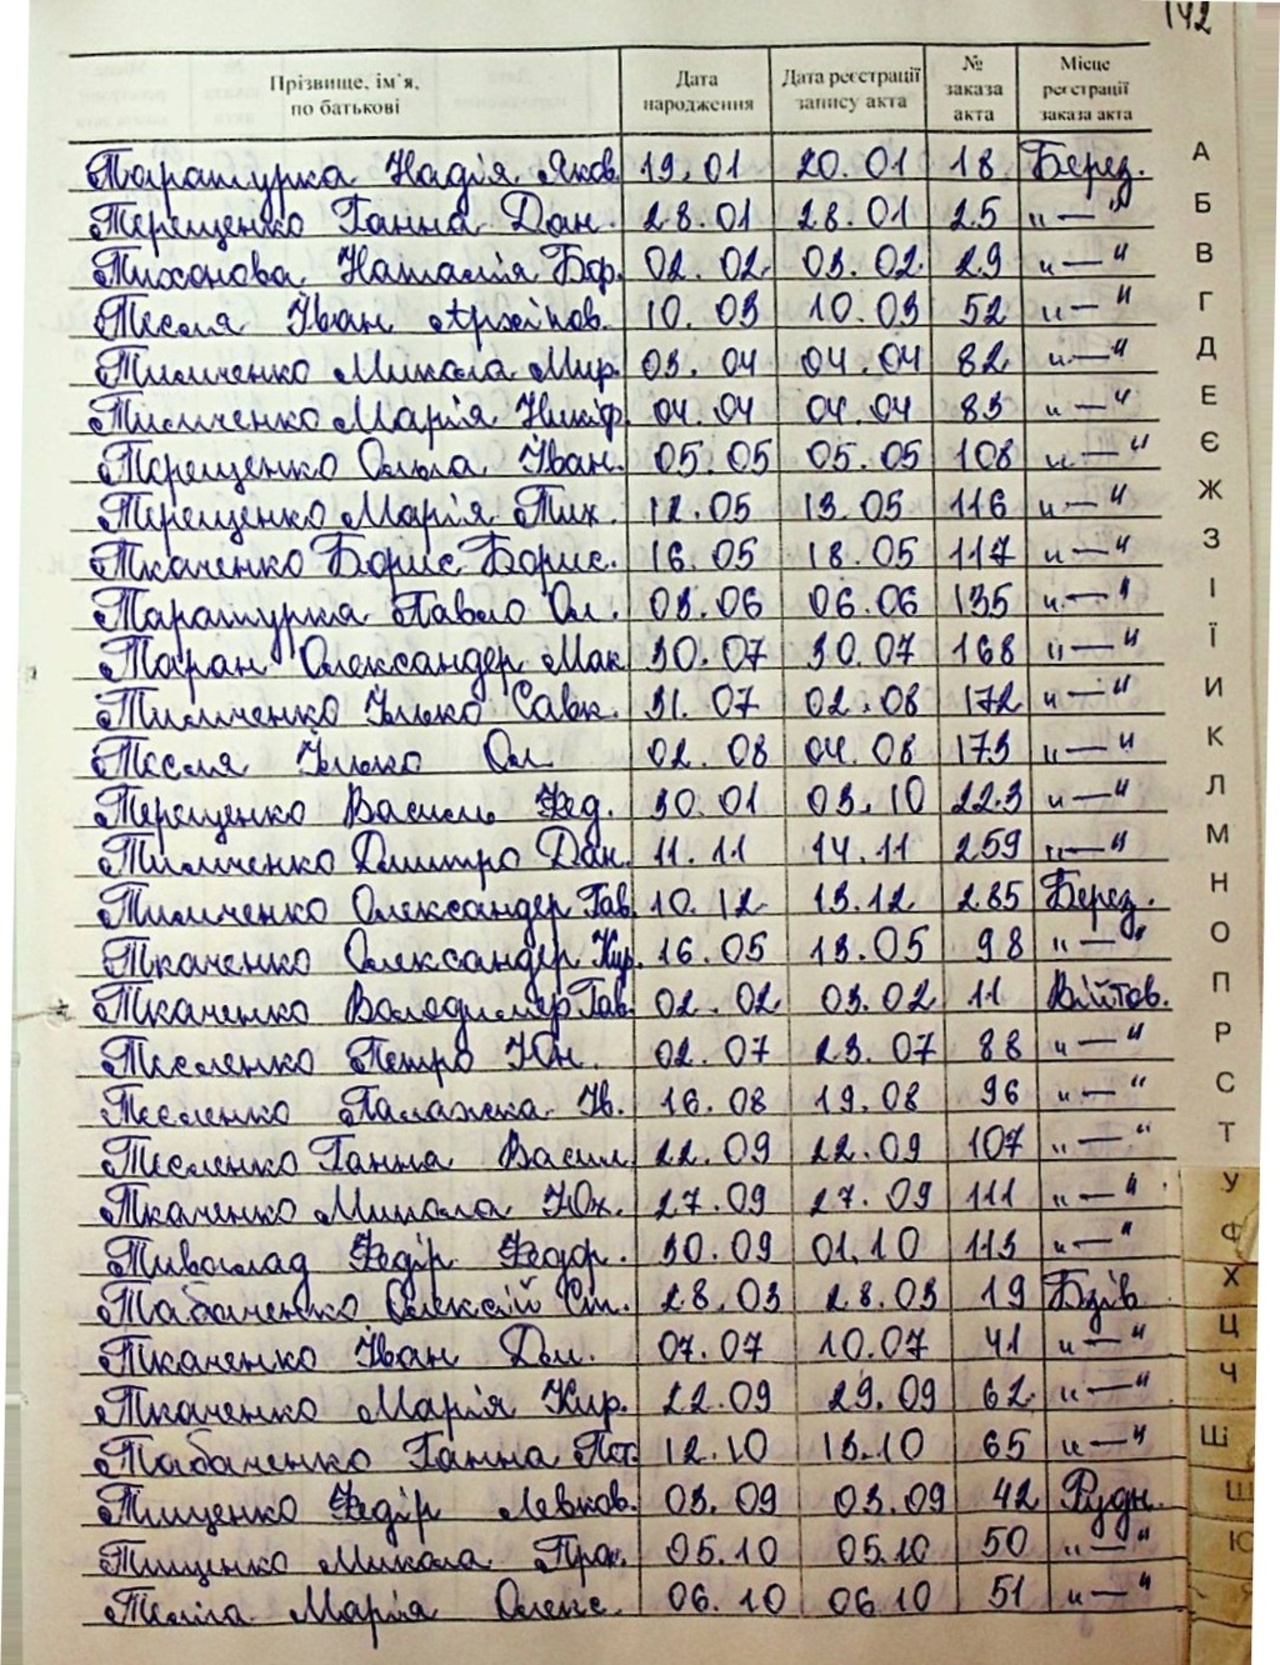 142
Прізвище, ім`я, по батькові Дата народження Дата реєстрації запису акта № заказа акта Місце реєстрації заказа акта
Таратурка Надія Яков. 19.01 20.01 18 Берез. А
Терещенко Ганна Дан. 28.01 28.01 25 „—“ Б
Тихонова Наталія Бор. 02.02. 03.02. 29 „—“ В
Тесля Іван Архипов. 10.03 10.03 52 „—“ Г
Тимченко Микола Мир. 03.04 04.04 82 „—“ Д
Тимченко Марія Никіф. 04.04 04.04 83 „—“ Е
Терещенко Ольга Іван. 05.05 05.05 108 „—“ Є
Терещенко Марія Тих. 12.05 13.05 116 „—“ Ж
Ткаченко Борис Борис. 16.05 18.05 117 „—“ З
Таратурка Павло Ол. 03.06 06.06 135 „—“ І
Таран Олександер Мак 30.07 30.07 168 „—“ Ї
Тимченко Ілько Савк. 31.07 02.08 172 „—“ И
Тесля Ілько Ол 02.08 04.08 173 „—“ К
Терещенко Василь Фед. 30.01 03.10 223 „—“ Л
Тимченко Дмитро Дан. 11.11 14.11 259 „—“ М
Тимченко Олександер Гав. 10.12 13.12 285 Берез. Н
Ткаченко Олександер Кир. 16.05 18.05 98 „—“ О
Ткаченко Володимер Гав. 02.02 03.02 11 Війтов. П
Тесленко Петро Юн. 02.07 23.07 88 „—“ Р
Тесленко Палажка Ів. 16.08 19.08 96 „—“ С
Тесленко Ганна Васил 22.09 22.09 107 „—“ Т
Ткаченко Микола Юх. 27.09 27.09 111 „—“ У
Тивоглад Федір Федор. 30.09 01.10 113 „—“ Ф
Табаченко Олексій Ст. 28.03 28.03 19 Бзів Х
Ткаченко Іван Дм. 07.07 10.07 41 „—“ Ц
Ткаченко Марія Кир. 22.09 29.09 62 „—“ Ч
Табаченко Ганна Пет. 12.10 13.10 65 „—“ Ш
Тищенко Федір Левков. 03.09 03.09 42 Рудн. Щ
Тищенко Микола Прок. 05.10 05.10 50 „—“ Ю
Марія Олекс. 06.10 06.10 51 „—“ Я